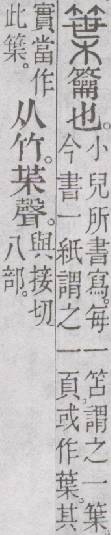 䈎籥也。小兒所書寫。每一笘謂之一䈎。今書一紙謂之一頁。或作葉。其
實當作此䈎。从竹。枼聲。與接切。八部。